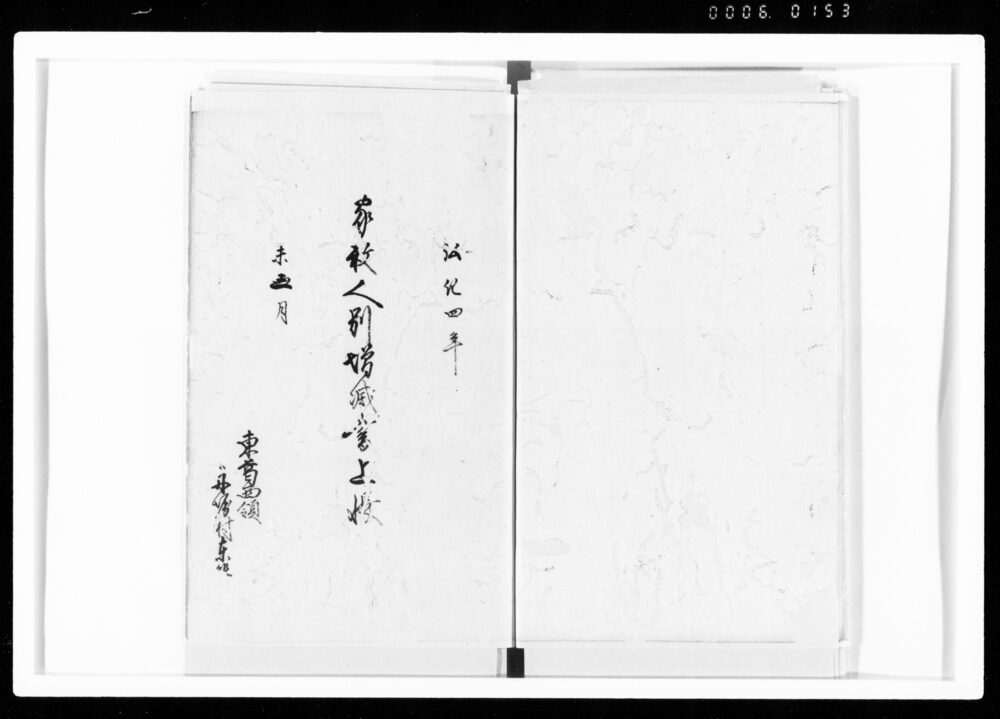 0006. 0153
弘化四年
家数人別増減書上帳
未五月
東葛西領
村